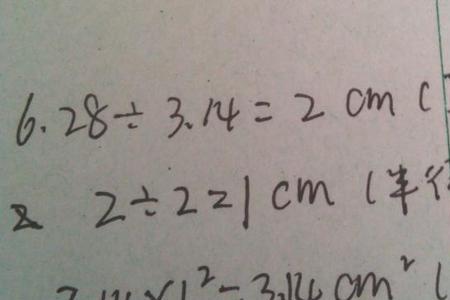 6.28÷3.14=2 cm (
2÷2=1 cm (半径
3.14×1²=3.14 cm² (